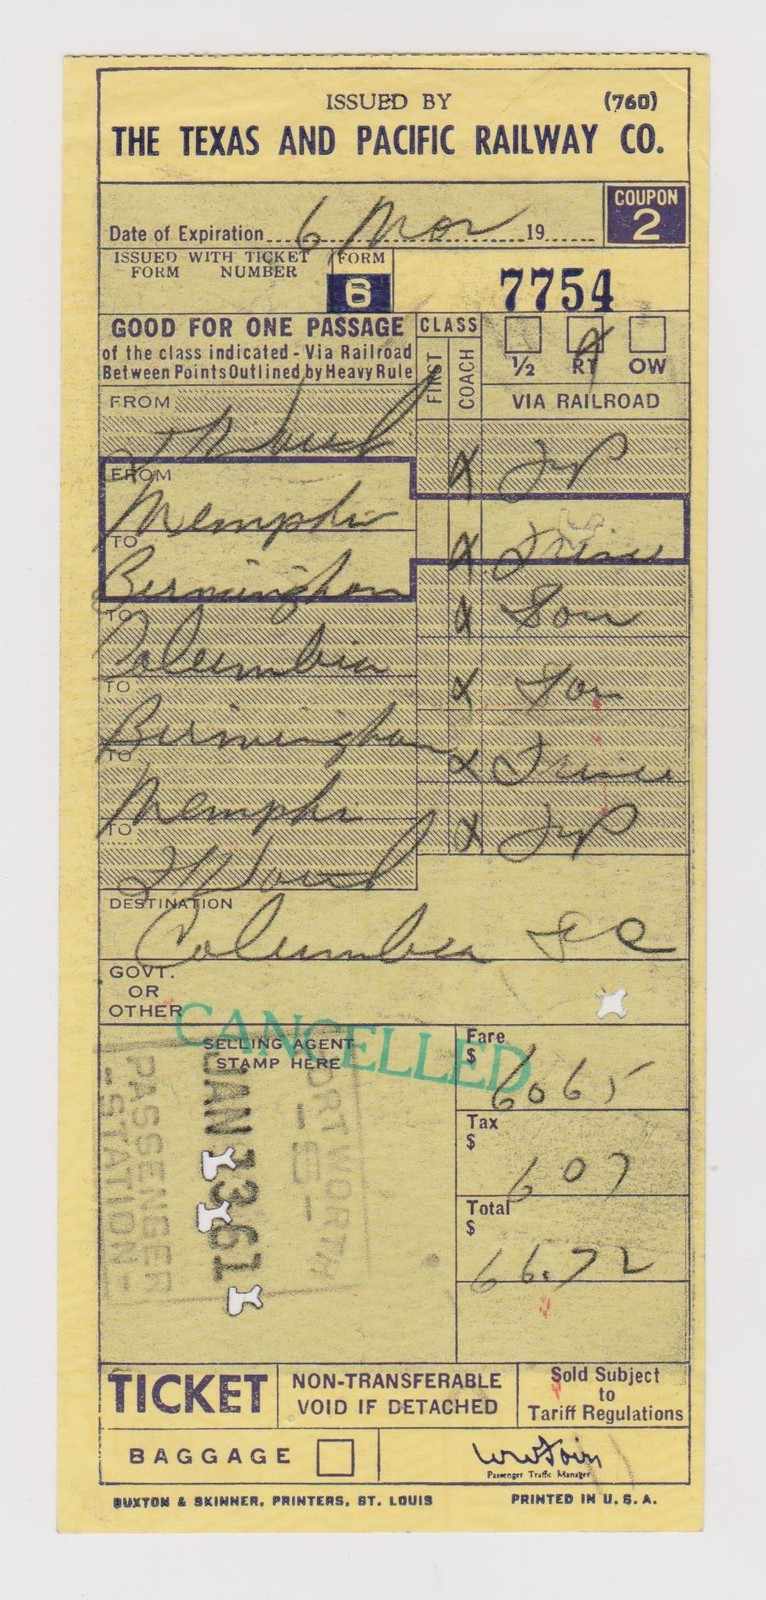 ISSUED BY (760)
THE TEXAS AND PACIFIC RAILWAY CO.
Date of Expiration 6 Mos 19
COUPON
2
ISSUED WITH TICKET
FORM NUMBER
FORM
6
7754
GOOD FOR ONE PASSAGE
of the class indicated - Via Railroad
Between Points Outlined by Heavy Rule
CLASS
FIRST
COACH
½ RT OW
VIA RAILROAD
FROM
Ft Worth X T&P
FROM
Memphis
TO
X Frisco
Birmingham
TO
X Sou
Columbia
TO
X Sou
Birmingham
TO
X Frisco
Memphis
TO
X T&P
Ft Worth
DESTINATION
Columbia SC
GOVT.
OR
OTHER
CANCELLED
SELLING AGENT
STAMP HERE
FORT WORTH
- 5 -
JAN 13 61
PASSENGER
- STATION -
Fare
$ 60 65
Tax
$ 6 07
Total
$ 66.72
TICKET
NON-TRANSFERABLE
VOID IF DETACHED
Sold Subject
to
Tariff Regulations
BAGGAGE
Passenger Traffic Manager
BUXTON & SKINNER, PRINTERS, ST. LOUIS PRINTED IN U. S. A.